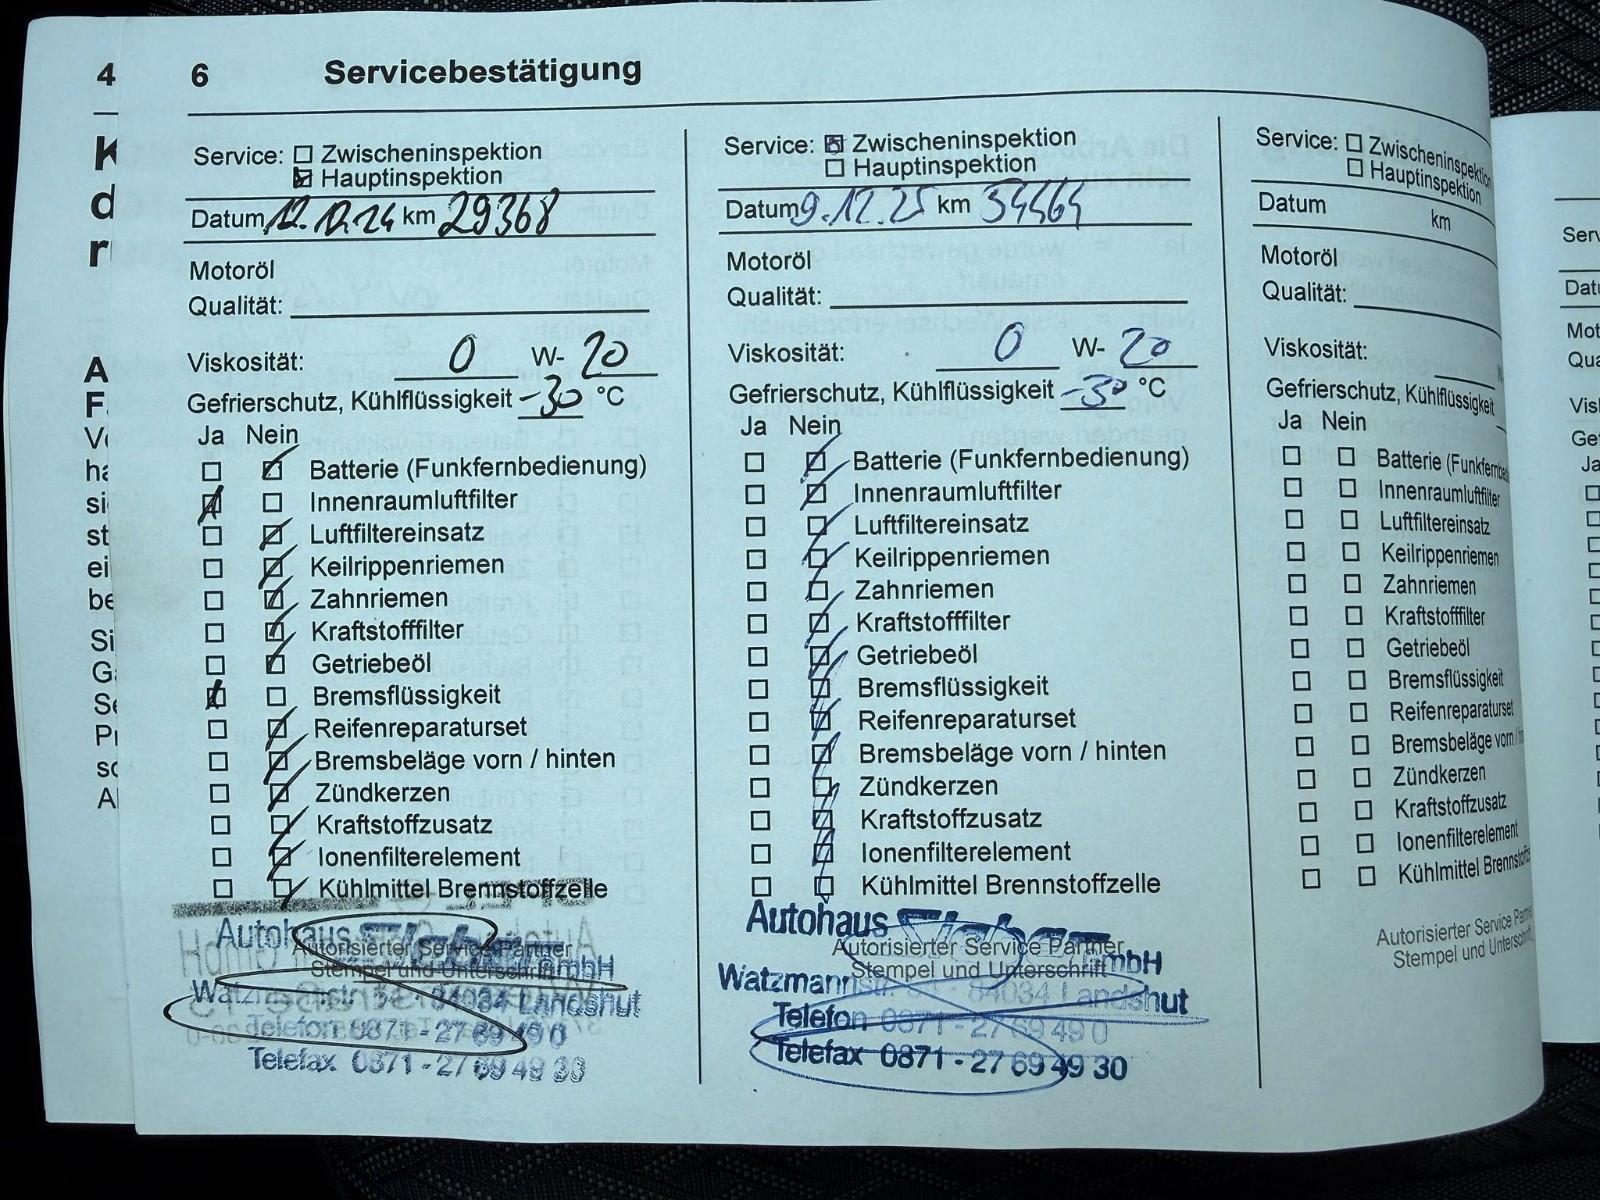 4
K
d
r
A
F
V
ha
si
st
ei
be
Si
G
Se
Pr
sc
6 Servicebestätigung
Service: Zwischeninspektion
Hauptinspektion
Datum 12.12.24 km 29368
Motoröl
Qualität:
Viskosität: 0 W- 20
Gefrierschutz, Kühlflüssigkeit -30 °C
Ja Nein
Batterie (Funkfernbedienung)
Innenraumluftfilter
Luftfiltereinsatz
Keilrippenriemen
Zahnriemen
Kraftstofffilter
Getriebeöl
Bremsflüssigkeit
Reifenreparaturset
Bremsbeläge vorn / hinten
Zündkerzen
Kraftstoffzusatz
Ionenfilterelement
Kühlmittel Brennstoffzelle
Autohaus
Autorisierter Service Partner
Stempel und Unterschrift
GmbH
Watzmannstr. 34 - 84034 Landshut
Telefon 0871 - 27 69 49 0
Telefax 0871 - 27 69 49 30
Service: Zwischeninspektion
Hauptinspektion
Datum 9.12.25 km
Motoröl
Qualität:
Viskosität: 0 W- 20
Gefrierschutz, Kühlflüssigkeit -30 °C
Ja Nein
Batterie (Funkfernbedienung)
Innenraumluftfilter
Luftfiltereinsatz
Keilrippenriemen
Zahnriemen
Kraftstofffilter
Getriebeöl
Bremsflüssigkeit
Reifenreparaturset
Bremsbeläge vorn / hinten
Zündkerzen
Kraftstoffzusatz
Ionenfilterelement
Kühlmittel Brennstoffzelle
Autohaus
Autorisierter Service Partner
Stempel und Unterschrift
GmbH
Watzmannstr. 34 - 84034 Landshut
Telefon 0871 - 27 69 49 0
Telefax 0871 - 27 69 49 30
Service: Zwischeninspektion
Hauptinspektion
Datum km
Motoröl
Qualität:
Viskosität:
Gefrierschutz, Kühlflüssigkeit
Ja Nein
Batterie (Funkfernbe
Innenraumluftfilter
Luftfiltereinsatz
Keilrippenriemen
Zahnriemen
Kraftstofffilter
Getriebeöl
Bremsflüssigkeit
Reifenreparaturset
Bremsbeläge vorn /
Zündkerzen
Kraftstoffzusatz
Ionenfilterelement
Kühlmittel Brennsto
Autorisierter Service Partn
Stempel und Unterschrif
Serv
Datu
Mot
Qua
Visk
Gef
Ja